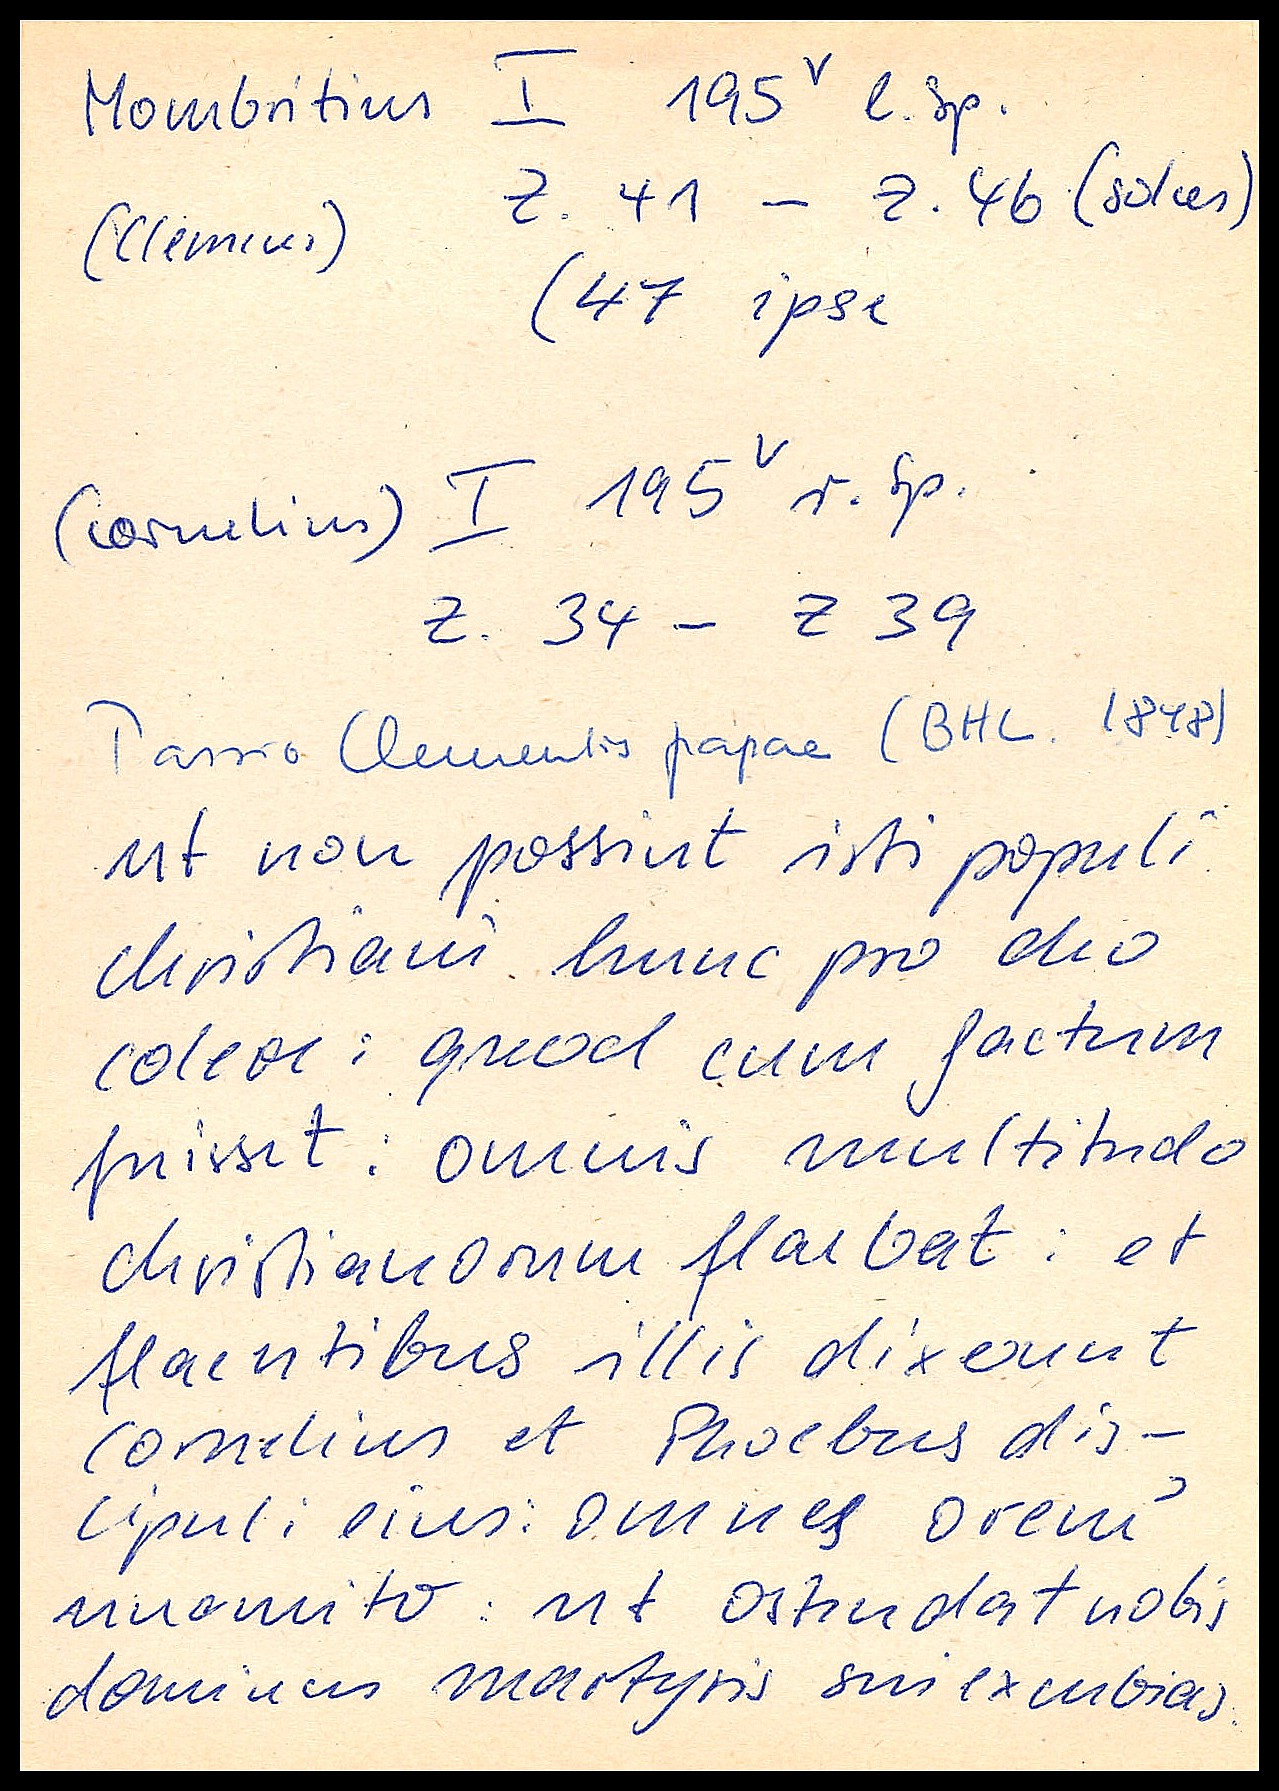 Mombritius I 195v l. Sp.
Z. 41 – Z. 46 (solus)
(Clemens)
(47 ipse
(Cornelius) I 195v r. Sp.
Z. 34 – Z 39
Passio Clementis papae (BHL. 1848)
ut non possint isti populi
christiani hunc pro deo
colere: quod cum factum
fuisset: omnis multitudo
christianorum flaebat: et
flaentibus illis dixerunt
Cornelius et Phoebus dis-
cipuli eius: omnes orem'
unamito: ut ostendat nobis
dominus martyris sui exeubias.